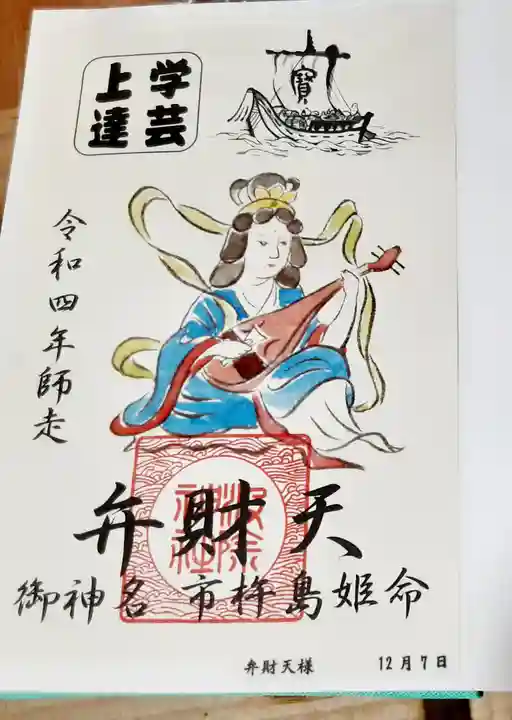 学芸
上達
寶
令和四年師走
弁財天
御神名 市杵島姫命
弁財天様 12月7日